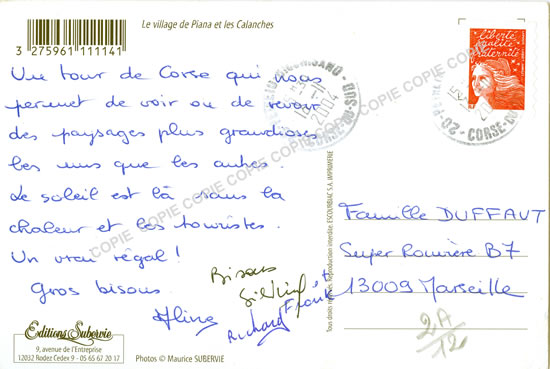 Le village de Piana et les Calanches
3 275961 111141
liberté
égalité
fraternité
CORSE-DU-SUD
2004
20 - CORSE-DU
Un tour de Corse qui nous
permet de voir ou de revoir
des paysages plus grandioses
les uns que les autres.
Le soleil est là sans la
chaleur et les touristes.
Un vrai régal !
Gros bisous.
Aline
Bisous
Richard
Famille DUFFAUT
Super Rouvière B7
13009 Marseille
2A
12
Editions Subervie
9, avenue de l'Entreprise
12032 Rodez Cedex 9 - 05 65 67 20 17
Photos © Maurice SUBERVIE
Tous droits réservés. Reproduction interdite. ESCOURBIAC S.A. IMPRIMERIE
COPIE COPIE COPIE COPIE COPIE COPIE COPIE COPIE COPIE